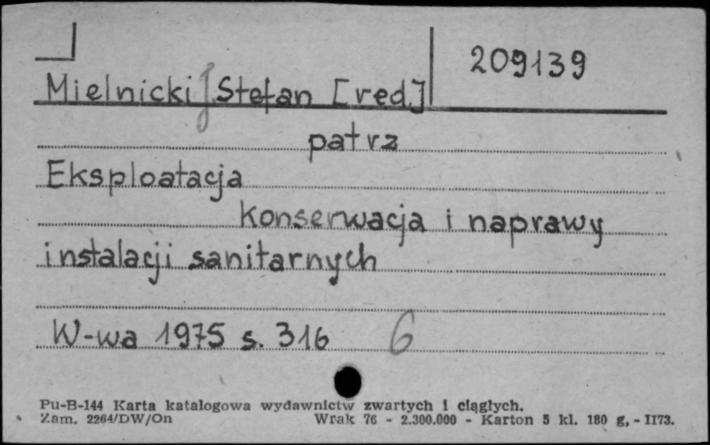 209139
Mielnicki Stefan [red.]
patrz
Eksploatacja
konserwacja i naprawy
instalacji sanitarnych
W-wa 1975 s. 316 6
Pu-B-144 Karta katalogowa wydawnictw zwartych i ciągłych.
Zam. 2264/DW/On Wrak 76 - 2.300.000 - Karton 5 kl. 180 g, - II73.